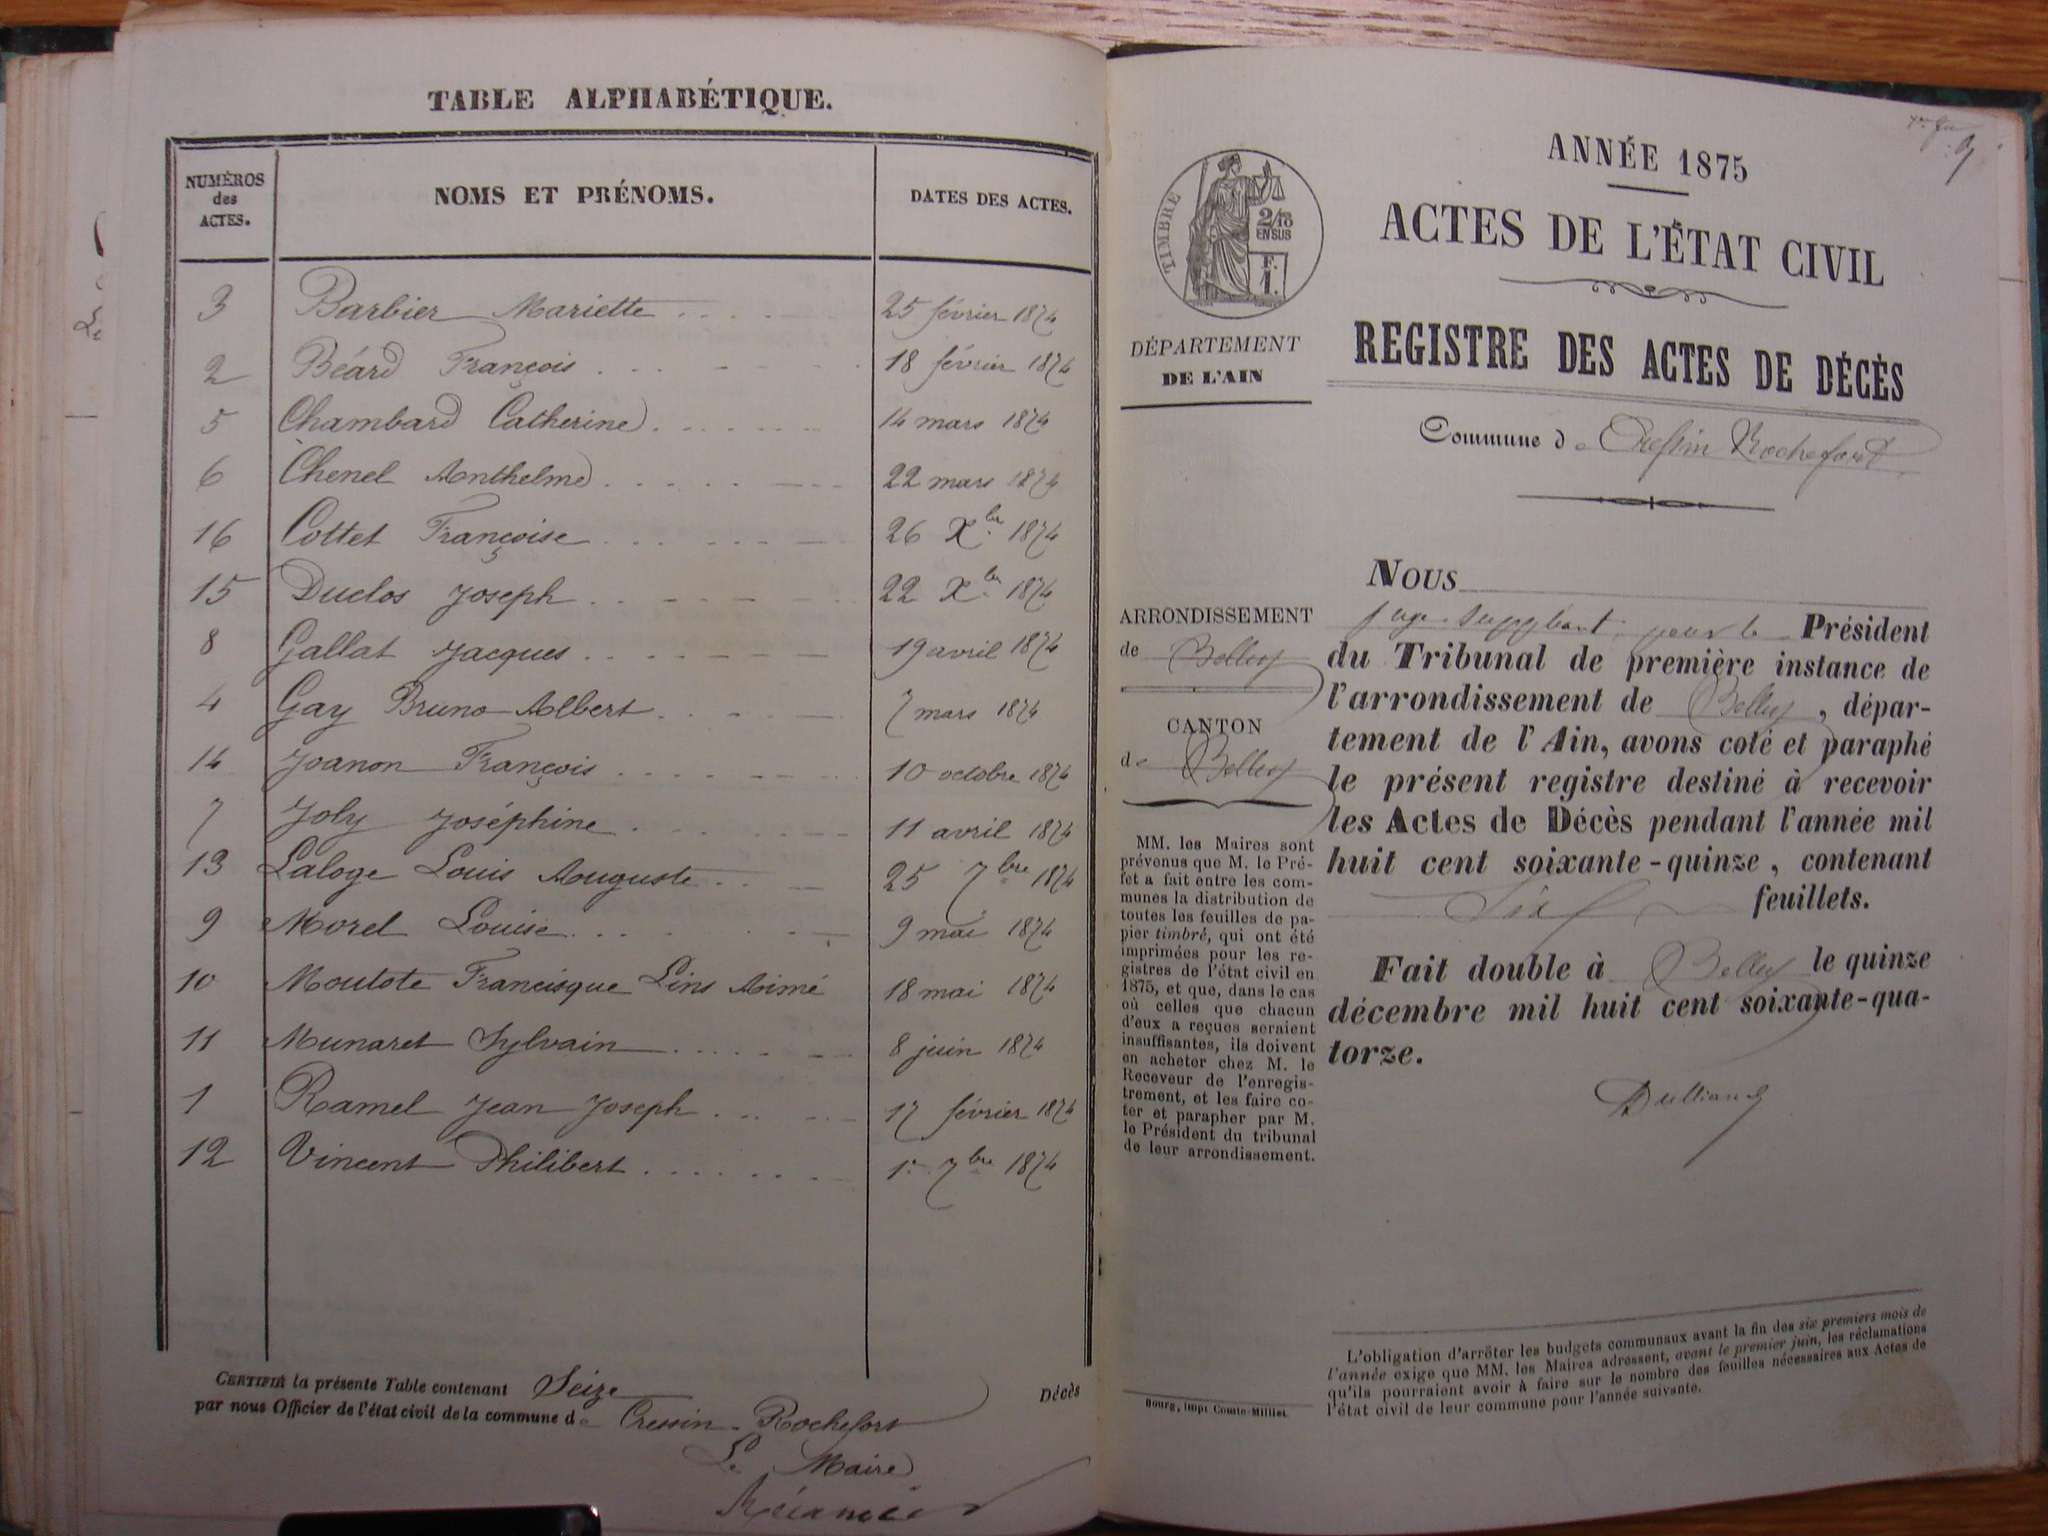 TABLE ALPHABÉTIQUE.
NUMÉROS
des
ACTES.
NOMS ET PRÉNOMS.
DATES DES ACTES.
3 Barbier Mariette 25 février 1874
2 Béard François 18 février 1874
5 Chambard Catherine 14 mars 1874
6 Chenel Anthelme 22 mars 1874
16 Cottet Françoise 26 Xbre 1874
15 Duclos Joseph 22 Xbre 1874
8 Gallat Jacques 19 avril 1874
4 Gay Bruno Albert 7 mars 1874
14 Joanon François 10 octobre 1874
7 Joly Joséphine 11 avril 1874
13 Laloge Louis Auguste 25 7bre 1874
9 Morel Louise 9 mai 1874
10 Moutote Francisque Lins Aimé 18 mai 1874
11 Munaret Sylvain 8 juin 1874
1 Ramel Jean Joseph 17 février 1874
12 Vincent Philibert 1r 7bre 1874
CERTIFIÉ la présente Table contenant Seize Décès
par nous Officier de l'état civil de la commune de Cressin-Rochefort
Le Maire
TIMBRE
2/10
EN SUS
F.
1.
DÉPARTEMENT
DE L'AIN
ARRONDISSEMENT
de Belley
CANTON
de Belley
MM. les Maires sont
prévenus que M. le Pré-
fet a fait entre les com-
munes la distribution de
toutes les feuilles de pa-
pier timbré, qui ont été
imprimées pour les re-
gistres de l'état civil en
1875, et que, dans le cas
où celles que chacun
d'eux a reçues seraient
insuffisantes, ils doivent
en acheter chez M. le
Receveur de l'enregis-
trement, et les faire co-
ter et parapher par M.
le Président du tribunal
de leur arrondissement.
Bourg, impr Comte-Milliet
ANNÉE 1875
ACTES DE L'ÉTAT CIVIL
REGISTRE DES ACTES DE DÉCÈS
Commune de Cressin Rochefort
NOUS
juge suppléant, pour le Président
du Tribunal de première instance de
l'arrondissement de Belley, dépar-
tement de l'Ain, avons coté et paraphé
le présent registre destiné à recevoir
les Actes de Décès pendant l'année mil
huit cent soixante-quinze, contenant
Six feuillets.
Fait double à Belley le quinze
décembre mil huit cent soixante-qua-
torze.
L'obligation d'arrêter les budgets communaux avant la fin des six premiers mois de
l'année exige que MM. les Maires adressent, avant le premier juin, les réclamations
qu'ils pourraient avoir à faire sur le nombre des feuilles nécessaires aux Actes de
l'état civil de leur commune pour l'année suivante.